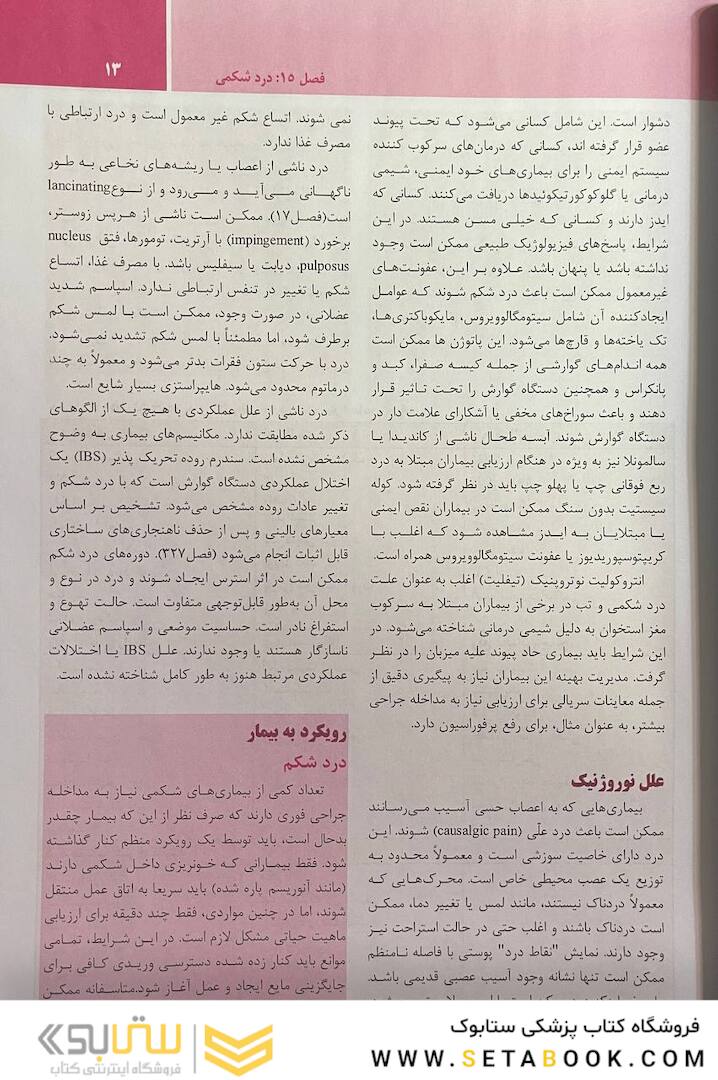 ۱۳
فصل ۱۵: درد شکمی
دشوار است. این شامل کسانی می‌شود که تحت پیوند
عضو قرار گرفته اند، کسانی که درمان‌های سرکوب کننده
سیستم ایمنی را برای بیماری‌های خود ایمنی، شیمی
درمانی یا گلوکوکورتیکوئیدها دریافت می‌کنند. کسانی که
ایدز دارند و کسانی که خیلی مسن هستند. در این
شرایط، پاسخ‌های فیزیولوژیک طبیعی ممکن است وجود
نداشته باشد یا پنهان باشد. علاوه بر این، عفونت‌های
غیرمعمول ممکن است باعث درد شکم شوند که عوامل
ایجادکننده آن شامل سیتومگالوویروس، مایکوباکتری‌ها،
تک یاخته‌ها و قارچ‌ها می‌شود. این پاتوژن ها ممکن است
همه اندام‌های گوارشی از جمله کیسه صفرا، کبد و
پانکراس و همچنین دستگاه گوارش را تحت تاثیر قرار
دهند و باعث سوراخ‌های مخفی یا آشکارای علامت دار در
دستگاه گوارش شوند. آبسه طحال ناشی از کاندیدا یا
سالمونلا نیز به ویژه در هنگام ارزیابی بیماران مبتلا به درد
ربع فوقانی چپ یا پهلو چپ باید در نظر گرفته شود. کوله
سیستیت بدون سنگ ممکن است در بیماران نقص ایمنی
یا مبتلایان به ایدز مشاهده شود که اغلب با
کریپتوسپوریدیوز یا عفونت سیتومگالوویروس همراه است.
انتروکولیت نوتروپنیک (تیفلیت) اغلب به عنوان علت
درد شکمی و تب در برخی از بیماران مبتلا به سرکوب
مغز استخوان به دلیل شیمی درمانی شناخته می‌شود. در
این شرایط باید بیماری حاد پیوند علیه میزبان را در نظر
گرفت. مدیریت بهینه این بیماران نیاز به پیگیری دقیق از
جمله معاینات سریالی برای ارزیابی نیاز به مداخله جراحی
بیشتر، به عنوان مثال، برای رفع پرفوراسیون دارد.
علل نوروژنیک
بیماری‌هایی که به اعصاب حسی آسیب می‌رسانند
ممکن است باعث درد علّی (causalgic pain) شوند. این
درد دارای خاصیت سوزشی است و معمولاً محدود به
توزیع یک عصب محیطی خاص است. محرک‌هایی که
معمولاً دردناک نیستند، مانند لمس یا تغییر دما، ممکن
است دردناک باشند و اغلب حتی در حالت استراحت نیز
وجود دارند. نمایش "نقاط درد" پوستی با فاصله نامنظم
ممکن است تنها نشانه وجود آسیب عصبی قدیمی باشد.
نمی شوند. اتساع شکم غیر معمول است و درد ارتباطی با
مصرف غذا ندارد.
درد ناشی از اعصاب یا ریشه‌های نخاعی به طور
ناگهانی می‌آید و می‌رود و از نوع lancinating
است(فصل۱۷). ممکن است ناشی از هرپس زوستر،
برخورد (impingement) با آرتریت، تومورها، فتق nucleus
pulposus، دیابت یا سیفلیس باشد. با مصرف غذا، اتساع
شکم یا تغییر در تنفس ارتباطی ندارد. اسپاسم شدید
عضلانی، در صورت وجود، ممکن است با لمس شکم
برطرف شود، اما مطمئناً با لمس شکم تشدید نمی‌شود.
درد با حرکت ستون فقرات بدتر می‌شود و معمولاً به چند
درماتوم محدود می‌شود. هایپراستزی بسیار شایع است.
درد ناشی از علل عملکردی با هیچ یک از الگوهای
ذکر شده مطابقت ندارد. مکانیسم‌های بیماری به وضوح
مشخص نشده است. سندرم روده تحریک پذیر (IBS) یک
اختلال عملکردی دستگاه گوارش است که با درد شکم و
تغییر عادات روده مشخص می‌شود. تشخیص بر اساس
معیارهای بالینی و پس از حذف ناهنجاری‌های ساختاری
قابل اثبات انجام می‌شود (فصل۳۲۷). دوره‌های درد شکم
ممکن است در اثر استرس ایجاد شوند و درد در نوع و
محل آن به‌طور قابل‌توجهی متفاوت است. حالت تهوع و
استفراغ نادر است. حساسیت موضعی و اسپاسم عضلانی
ناسازگار هستند یا وجود ندارند. علل IBS یا اختلالات
عملکردی مرتبط هنوز به طور کامل شناخته نشده است.
رویکرد به بیمار
درد شکم
تعداد کمی از بیماری‌های شکمی نیاز به مداخله
جراحی فوری دارند که صرف نظر از این که بیمار چقدر
بدحال است، باید توسط یک رویکرد منظم کنار گذاشته
شود. فقط بیمارانی که خونریزی داخل شکمی دارند
(مانند آنوریسم پاره شده) باید سریعا به اتاق عمل منتقل
شوند، اما در چنین مواردی، فقط چند دقیقه برای ارزیابی
ماهیت حیاتی مشکل لازم است. در این شرایط، تمامی
موانع باید کنار زده شده دسترسی وریدی کافی برای
جایگزینی مایع ایجاد و عمل آغاز شود.متاسفانه ممکن
فروشگاه کتاب پزشکی ستابوک
WWW.SETABOOK.COM
ستابوک
فروشگاه اینترنتی کتاب